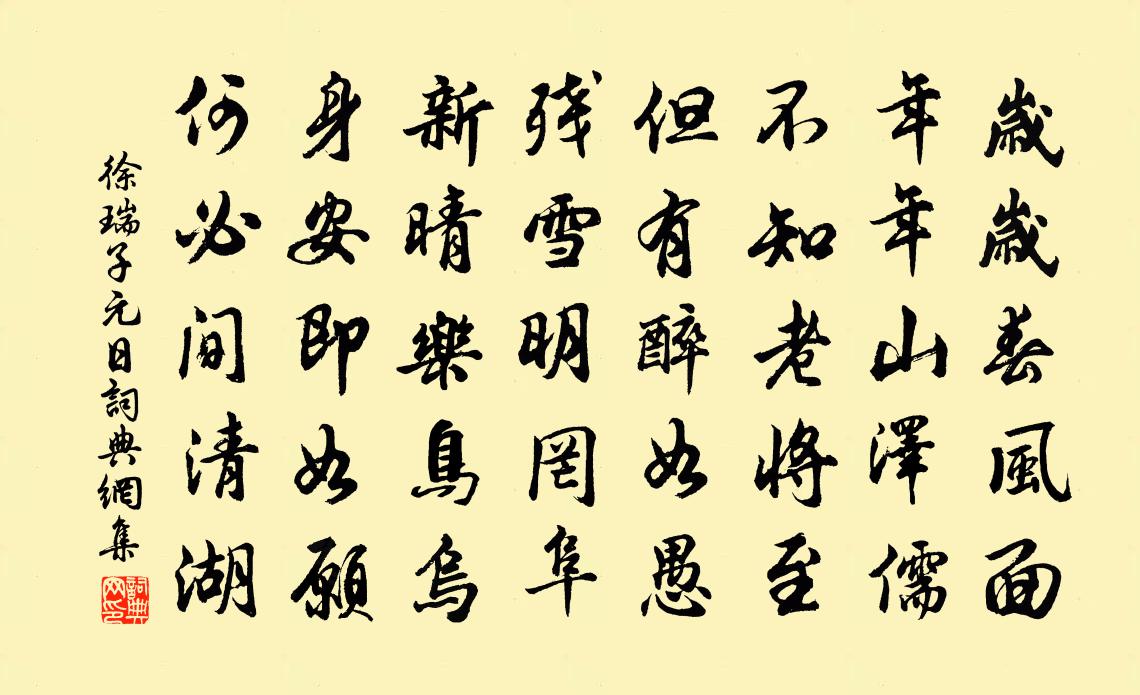 歲歲春風面
年年山澤儒
不知老將至
但有醉如愚
残雪明岡阜
新晴樂鳥烏
身安即如願
何必間清湖
徐瑞子元日詞典網集
詞典网印